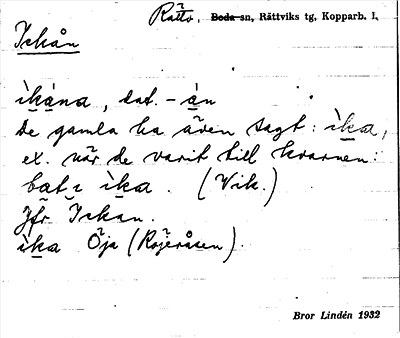 Rättv, Boda sn, Rättviks tg, Kopparb. l,
Ickån
ìkàna, dat. -àn
De gamla ha även sagt: ìka,
ex. när de varit till kvarnen:
bat ɪ ìka. (Vik.)
Jfr Ickan.
ìka Öja (Röjeråsen).
Bror Lindén 1932